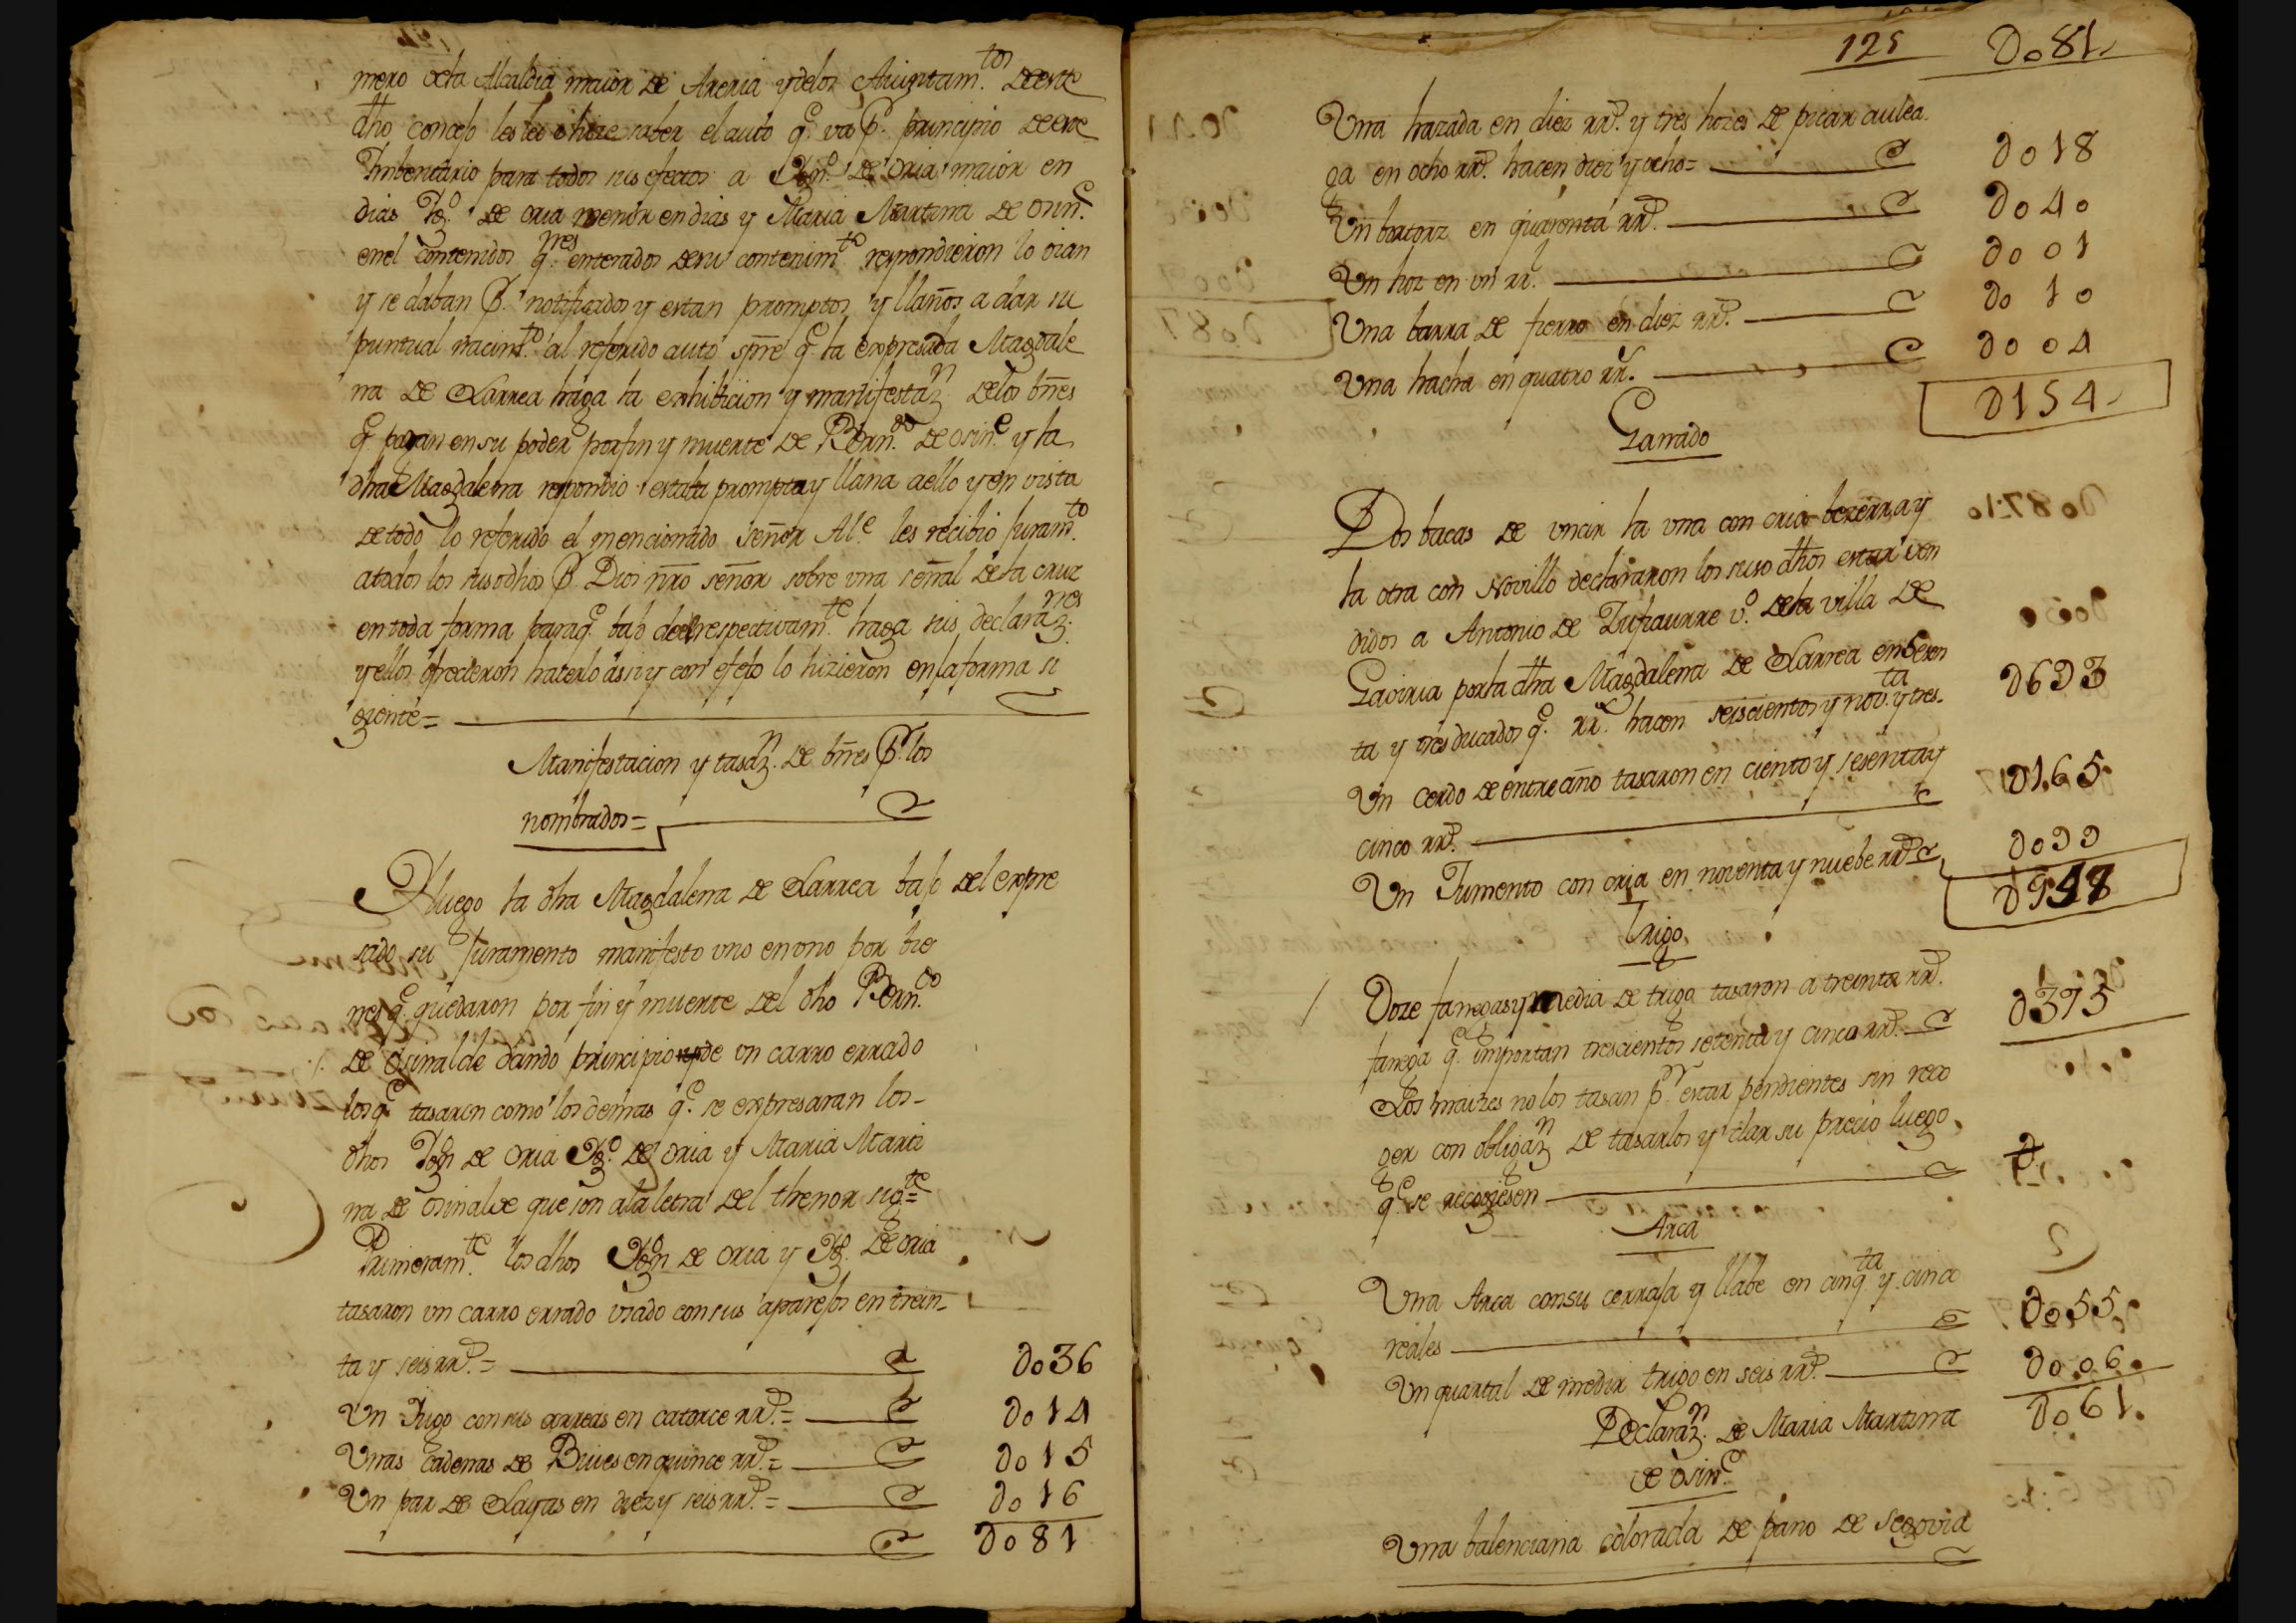 mero desta Alcaldia maior de Areria y delos Aiuntam.tos deeste
dho concejo les lei e hize saver el auto q.e va p.r principio deeste
Imbentario para todos sus efectos a Jħn de oria maior en
dias Jħo de oria menor en dias y Maria Martina de osin.e
enel contenidos q.nes enterados desu contenim.to respondieron lo oian
y se daban p.r notificados y estan promptos y llanos a dar su
puntual nacim.to al referido auto spre q.e la expresada Magdale
na de Larrea haga la exhibicion y manifestaz.n delos bnes
q.e paran en su poder por fin y muerte de Bern.do de osin.e y la
dha Magdalena respondio estaba prompta y llana aello y en vista
de todo lo referido el mencionado señor Al.e les recibio juram.to
atodos los susodhos p.r Dios nro señor sobre una señal dela cruz
en toda forma paraq.e bajo del respectivam.te haga sus declaraz.nes
y ellos ofrecieron hazerlo assi y con efeto lo hizieron enla forma si
giente=
Manifestacion y tasaz.n de bnes p.r los
nombrados=
Y luego la dha Magdalena de Larrea bajo del expre
sado su juramento manifesto uno en uno por bie
nes q.e quedaron por fin y muerte del dho Bern.do
de Osinalde dando principio de un carro errado
los q.e tasaron como los demas q.e se expresaran los
dhos Jħn de oria Jħo de oria y Maria Marti
na de osinalde que son ala letra del thenor sig.te=
Primeram.te los dhos Jħn de oria y Jħo de oria
tasaron un carro errado usado con sus aparejos en trein-
ta y seis rr.s= 0036
Un Jugo con sus arreas en catorce rr.s= 0014
Unas cadenas de Bueies en quince rr.s= 0015
Un par de Layas en diez y seis rr.s= 0016
0081
125 0081
Una hazada en diez rr.s y tres hozes de picar aulea
ga en ocho rr.s hacen diez y ocho= 0018
Un bortorz en quarenta rr.s 0040
Un hoz en un rr.l 0001
Una barra de fierro en diez rr.s 0010
Una hacha en quatro rr.s 0004
0154
Ganado
Dos bacas de uncir la una con cria bezerra y
la otra con Novillo declararon los suso dhos estar ven
didos a Antonio de Zufiaurre v.o dela villa de
Gaviria por la dha Magdalena de Larrea en sesen
ta y tres ducados q.e rr.s hacen seiscientos y nov.ta y tres 0693
Un cerdo de entre año tasaron en ciento y sesenta y
cinco rr.s 0165
Un Jumento con cria en noventa y nuebe rr.s 0099
0957
Trigo
Doze fanegas y media de trigo tasaron a treinta rr.s
fanega q.e importan trescientos setenta y cinco rr.s 0375
Los maizes no los tasan p.r estar pendientes sin reco
ger con obligaz.n de tasarlos y dar su precio luego
q.e se recogiesen
Arca
Una Arca con su cerraja y llabe en cinq.ta y cinco
reales 0055
Un quartal de medir trigo en seis rr.s 0006
0061
Declaraz.n de Maria Martina
de osin.e
Una balenciana colorada de pano de segovia